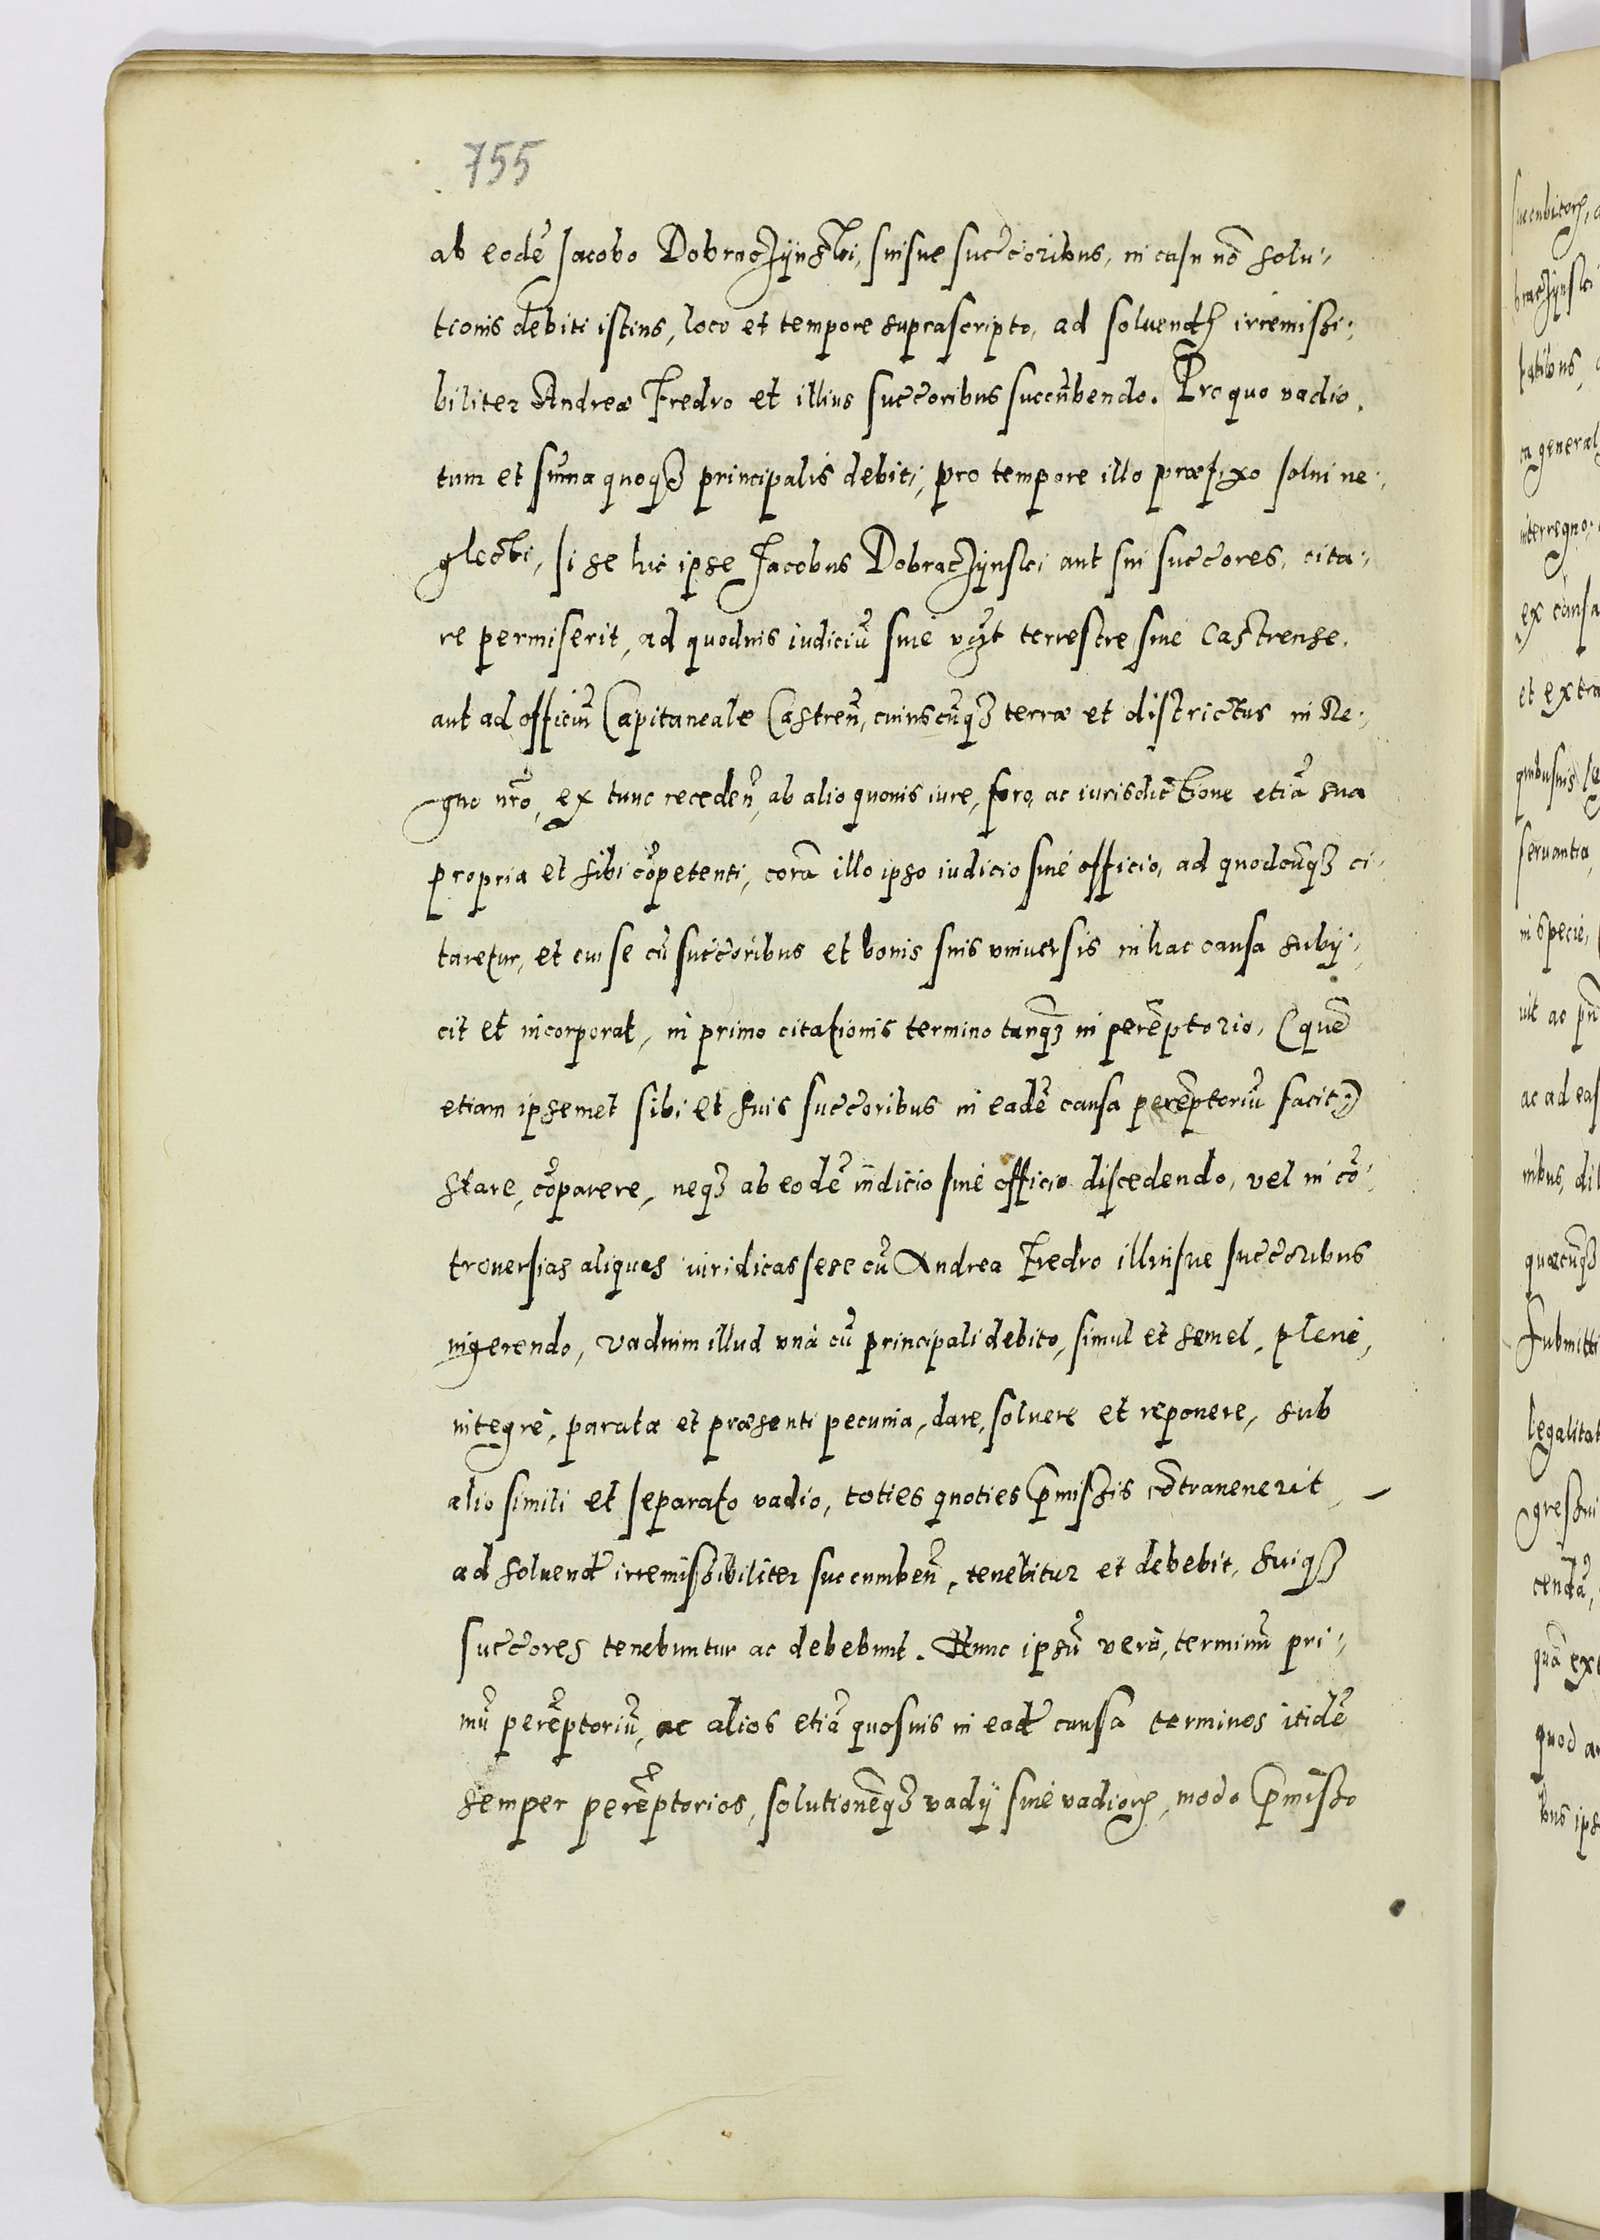 755
ab eodē Jacobo Dobraczÿnski, suisue succ̄oribus, in casu nō solu-
tionis debiti istius, loco et tempore suprascripto, ad soluend irremissi-
biliter Andreæ Fredro et illius succ̄oribus succūbendo. Pro quo vadio
tum et sūma quoqȝ principalis debiti, pro tempore illo præfixo solui ne-
glecti, si se hic ipse Jacobus Dobraczÿnski aut sui succ̄ores, cita-
re permiserit, ad quoduis iudiciū siue vȝt terrestre siue Castrense,
aut ad officiū Capitaneale Castreñ, cuiuscūqȝ terræ et districtus in Re-
gno nrō, ex tunc recedeñ, ab alio quouis iure, foro, ac iurisdictione etiā sua
propria et sibi cōpetenti, corā illo ipso iudicio siue officio, ad quodcūqȝ ci-
taretur, et cui se cū succ̄oribus et bonis suis vniuersis in hac causa subij-
cit et incorporat, in primo citationis termino tanqȝ in perēptorio, (quē
etiam ipsemet sibi et suis succ̄oribus in eadē causa perēptoriū facit,)
stare, cōparere, neqȝ ab eodē iudicio siue officio discedendo, vel in cō-
trouersias aliquas iuridicas sese cū Andrea Fredro illiusue succ̄oribus
ingerendo, vadium illud vnà cū principali debito, simul et semel, plenè,
integrè, parata et præsenti pecunia, dare, soluere et reponere, sub
alio simili et separato vadio, toties quoties p̄missis cōtrauenerit,
ad soluend irremissibiliter succumbeñ, tenebitur et debebit, suiqȝ
succ̄ores tenebuntur ac debebunt. Hunc ipsū verò, terminū pri-
mū perēptoriū, ac alios etiā quosuis in ead causa terminos itidē
semper perēptorios, solutionēqȝ vadij siue vadior, modo p̄misso